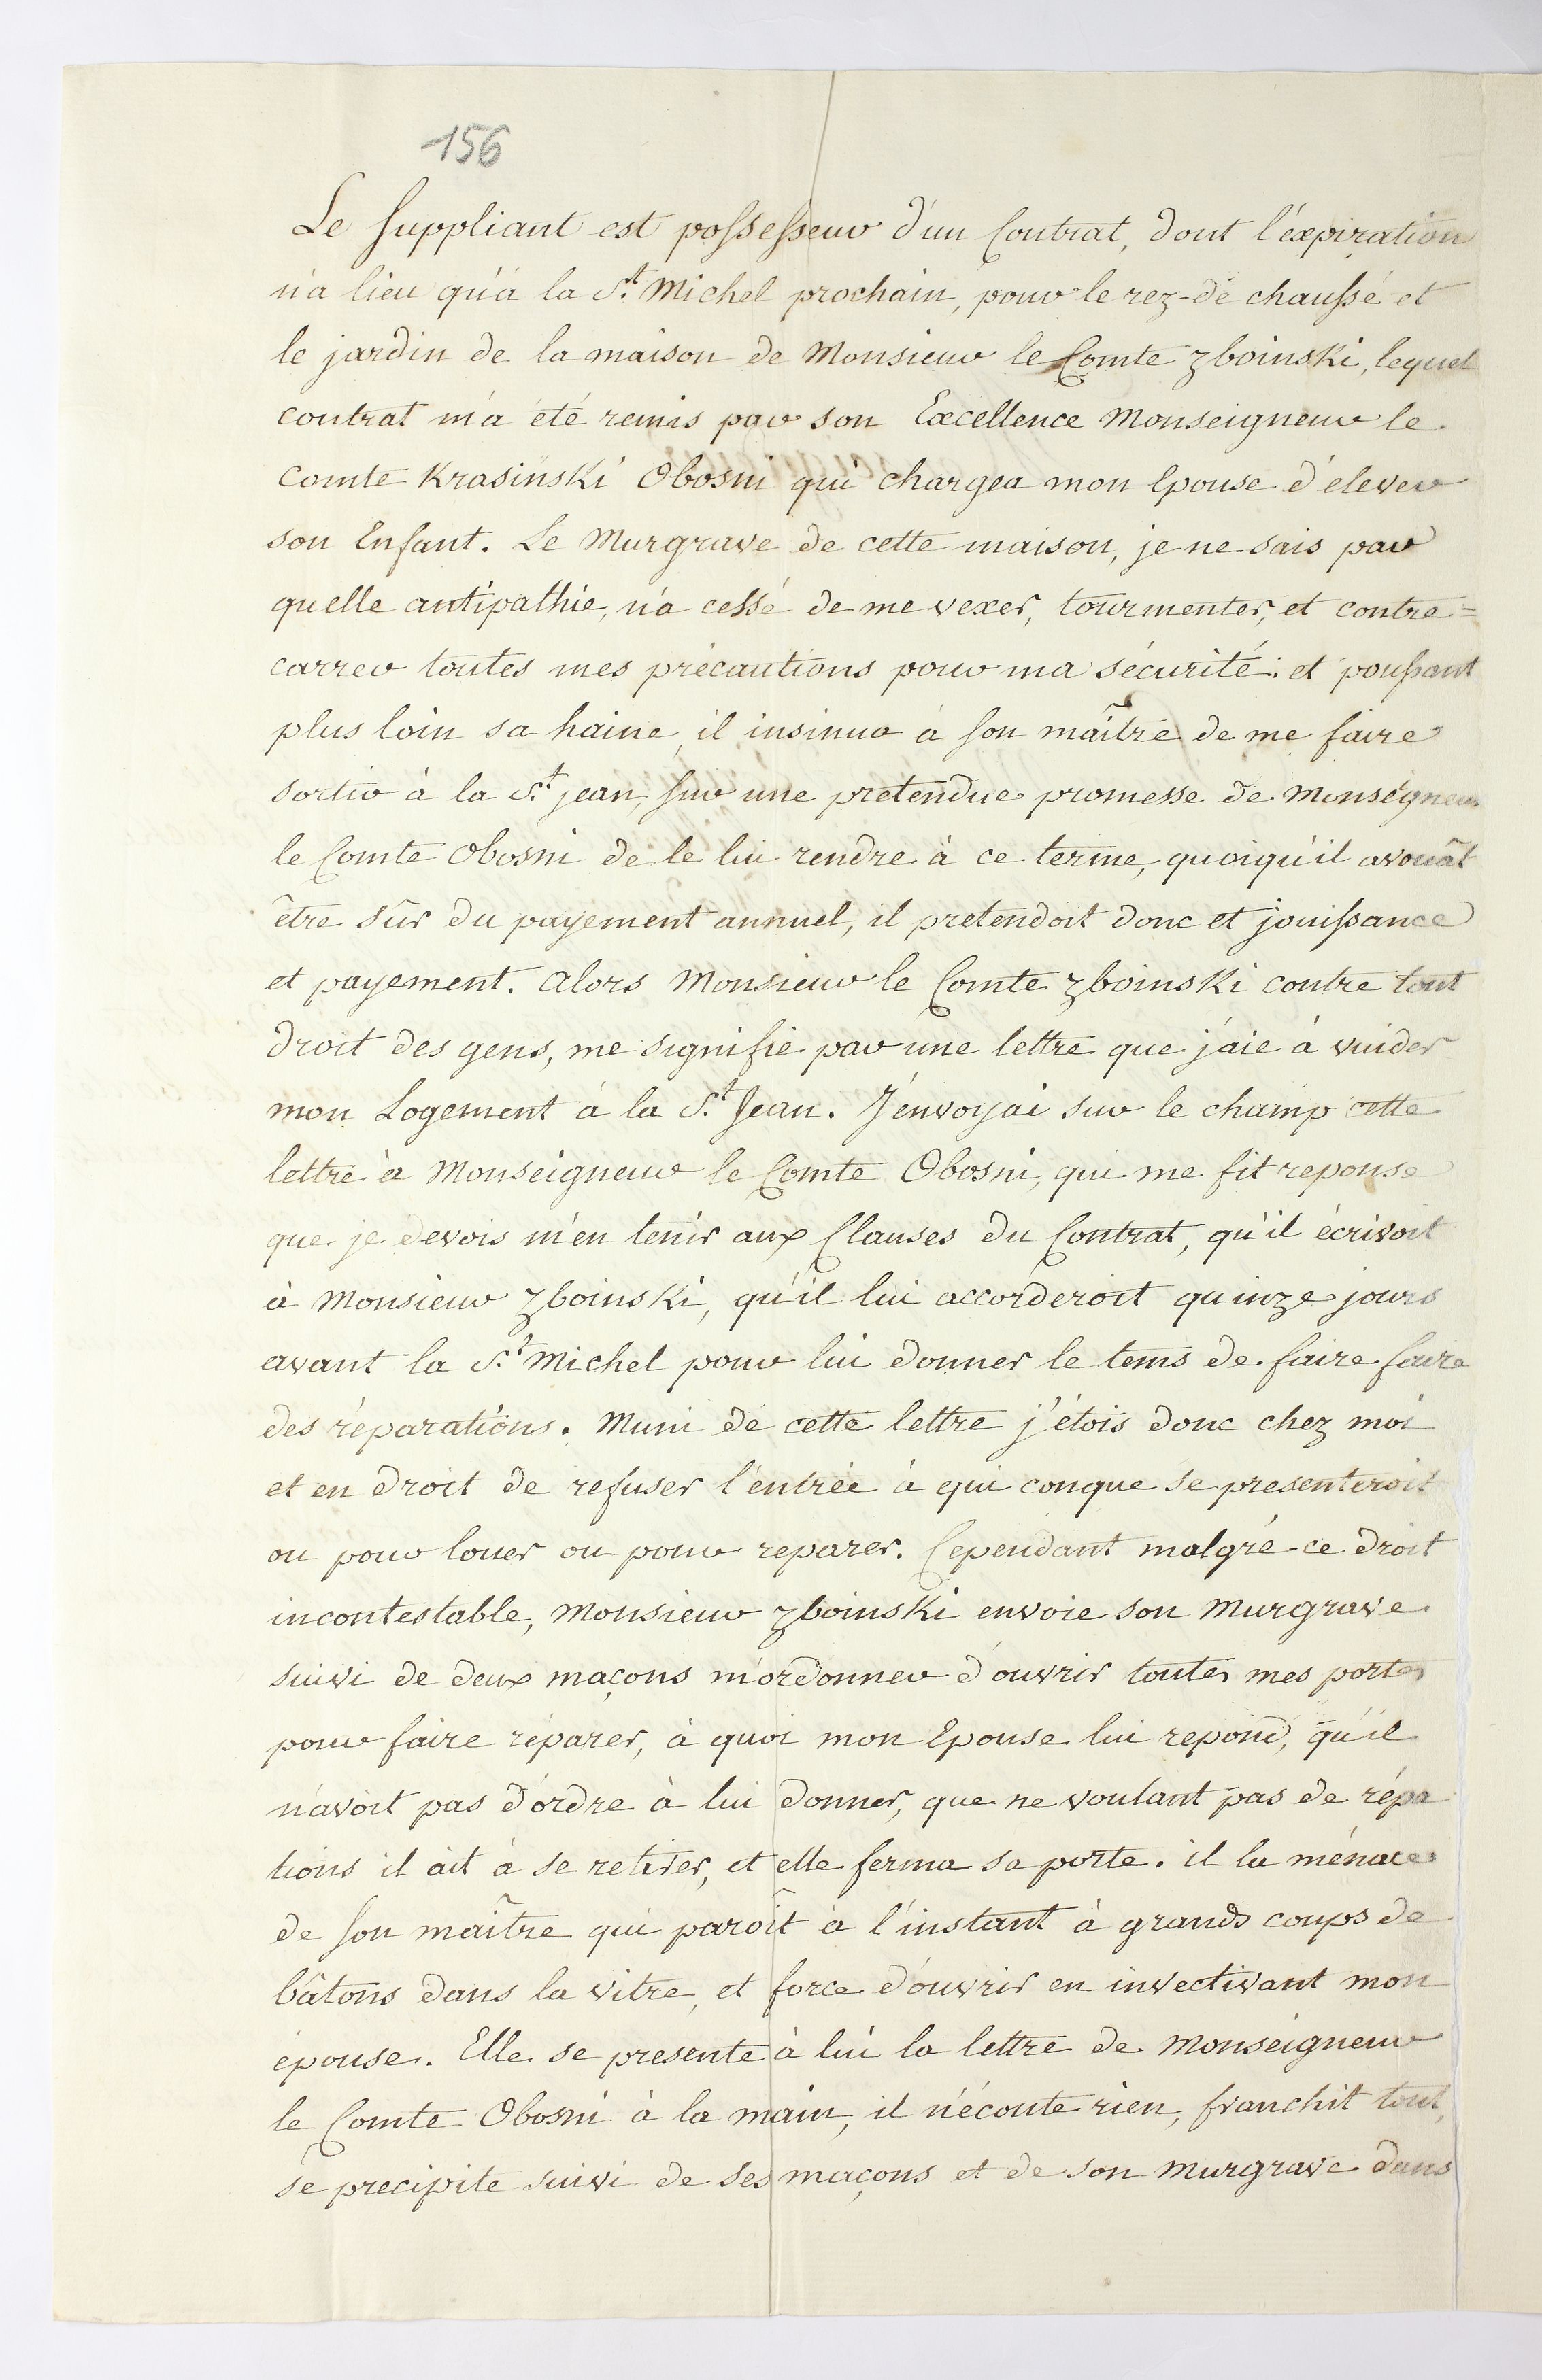 156
Le suppliant est possesseur d'un Contrat, dont l'éxpiration
n'a lieu qu'à la S.t Michel prochain, pour le rez-de chaussé et
le jardin de la maison de Monsieur le Comte Zboinski, lequel
contrat m'a été remis par son Excellence Monseigneur le
Comte Krasinski Obosni qui chargea mon Epouse d'élever
son Enfant. Le Murgrave de cette maison, je ne sais par
quelle antipathie, n'a cessé de me vexer, tourmenter, et contre=
carrer toutes mes précautions pour ma sécurité: et poussant
plus loin sa haine, il insinua à son maître de me faire
sortir à la S.t jean, sur une pretendue promesse de Monségneur
le Comte Obosni de le lui rendre à ce terme, quoiqu'il avouât
être sûr du payement annuel, il pretendoit donc et jouissance
et payement. Alors Monsieur le Comte Zboinski contre tout
droit des gens, me signifie par une lettre que j'aie à vuider
mon Logement à la S.t Jean. J'envoyai sur le champ cette
lettre à Monseigneur le Comte Obosni, qui me fit reponse
que je devois m'en tenir aux Clauses du Contrat, qu'il écrivoit
à Monsieur Zboinski, qu'il lui accorderoit quinze jours
avant la S.t Michel pour lui donner le tems de faire faire
des réparations. Muni de cette lettre j'étois donc chez moi
et en droit de refuser l'entrée à qui conque se presenteroit
ou pour louer ou pour reparer. Cependant malgré ce droit
incontestable, Monsieur Zboinski envoie son Murgrave
suivi de deux maçons m'ordonner d'ouvrir toutes mes portes
pour faire réparer, à quoi mon Epouse lui repond, qu'il
n'avoit pas d'ordre à lui donner, que ne voulant pas de répa
tions il ait à se retirer, et elle ferma sa porte. il la ménace
de son maître qui paroît à l'instant à grands coups de
bâtons dans la vitre, et force d'ouvrir en invectivant mon
épouse. Elle se presente à lui la lettre de Monseigneur
le Comte Obosni à la main, il n'écoute rien, franchit tout,
se precipite suivi de ses maçons et de son murgrave dans